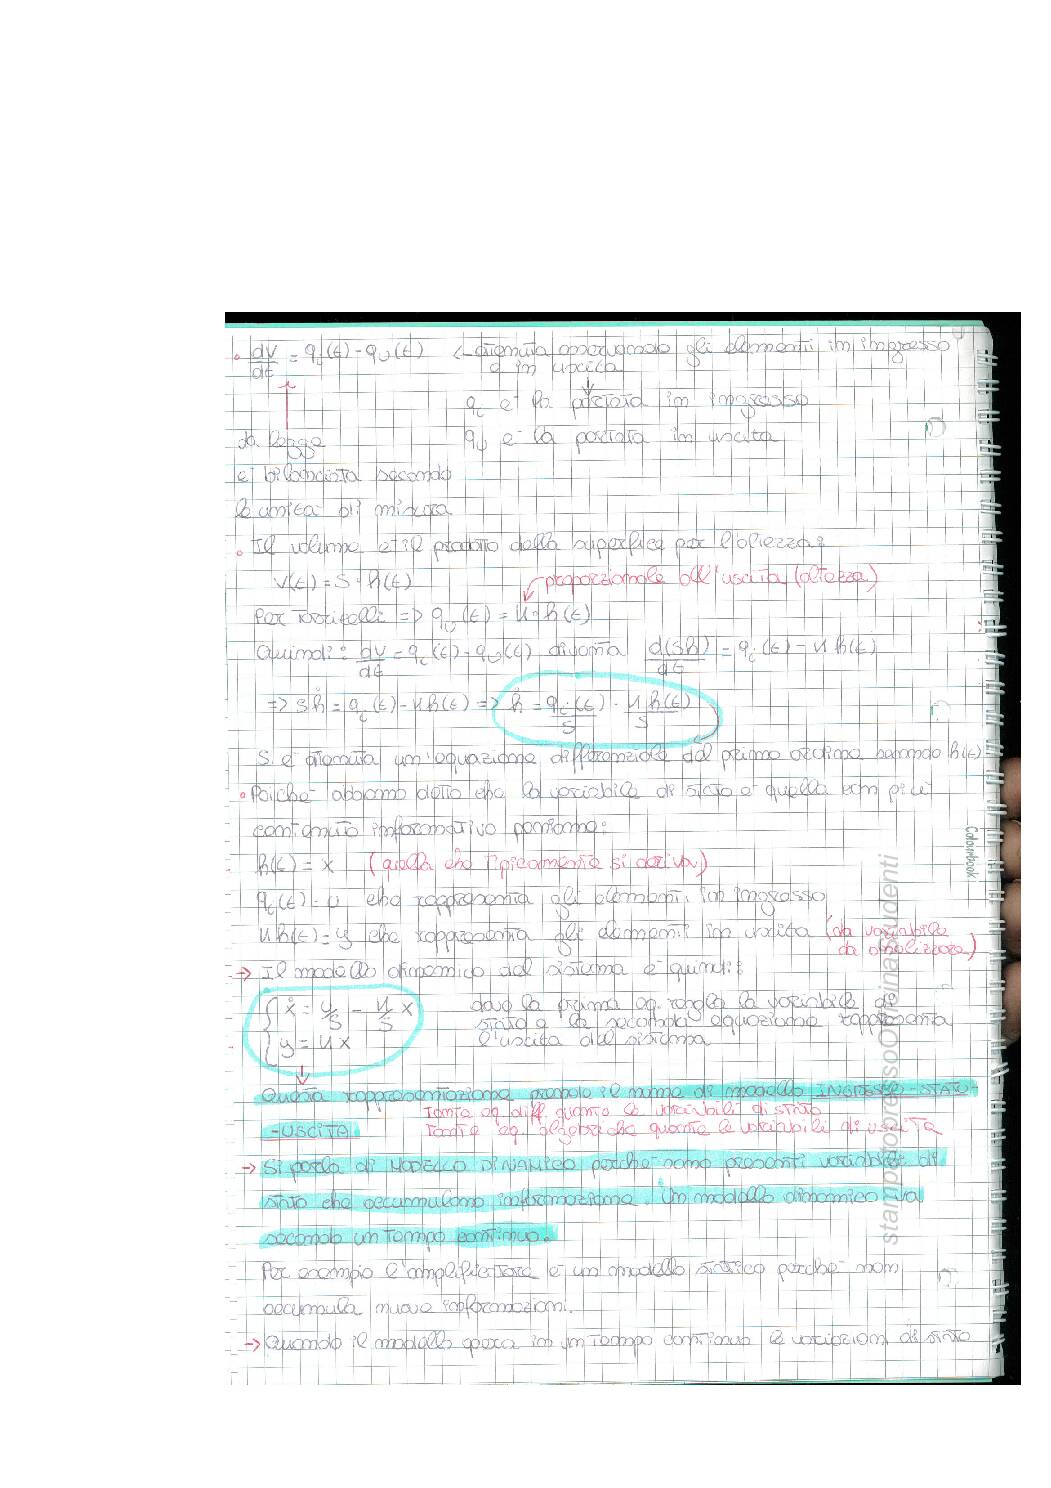 • dV/dt = qi(t) - qu(t) ← ottenuta osservando gli elementi in ingresso
e in uscita
qi e' la portata in ingresso
la legge qu e' la portata in uscita
e' bilanciata secondo
le unita' di misura
• Il volume e' il prodotto della superfice per l'altezza:
V(t) = S · h(t) proporzionale all'uscita (altezza)
Per Torricelli => qu(t) = K·h(t)
Quindi: dV/dt = qi(t) - qu(t) diventa d(Sh)/dt = qi(t) - K h(t)
=> Sḣ = qi(t) - Kh(t) => ḣ = qi(t)/S - K h(t)/S
Si e' ottenuta un'equazione differenziale del primo ordine h(t)
• Poiche' abbiamo detto che la variabile di stato e' quella con piu'
contenuto informativo poniamo:
h(t) = x (quella che tipicamente si deriva)
qi(t) = u che rappresenta gli elementi in ingresso
K h(t) = y che rappresenta gli elementi in uscita (la variabile
da analizzare)
→ Il modello dinamico del sistema e' quindi:
ẋ = u/S - K/S x dove la prima eq. regola la variabile di
stato e la seconda equazione rappresenta
y = Kx l'uscita del sistema
Questa rappresentazione prende il nome di modello INGRESSO-STATO-
Tante eq. diff. quante le variabili di stato
-USCITA Tante eq. algebriche quante le variabili di uscita
→ Si parla di MODELLO DINAMICO perche' sono presenti variabili di
stato che accumulano informazione. Un modello dinamico va
secondo un tempo continuo.
Per esempio l'amplificatore e' un modello statico perche' non
accumula nuove informazioni.
→ Quando il modello opera in un tempo continuo le variazioni di stato
Colourbook
stampatopressoOfficinaStudenti